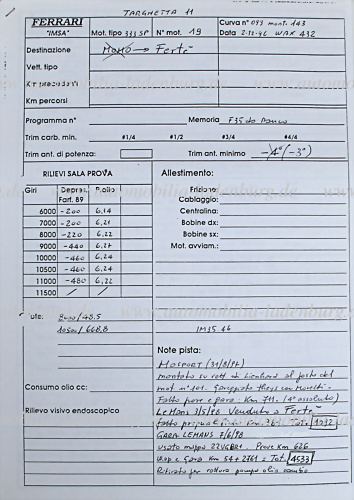 TARGHETTA 11
FERRARI
"IMSA"
Mot. tipo 333 SP N° mot. 19
Curva n° 093 mont. 143
Data 2-12-96 WAX 432
Destinazione MOMO → Ferté
Vett. tipo
Km precedenti
Km percorsi
Programma n° Memoria F35 da banco
Trim carb. min. #1/4 #1/2 #3/4 #4/4
Trim ant. di potenza: Trim ant. minimo -4° (-3°)
RILIEVI SALA PROVA
Giri Depres. Fart. 89 P.olio
6000 -200 6,14
7000 -200 6,21
8000 -220 6,22
9000 -440 6,27
10000 -460 6,24
10500 -460 6,24
11000 -480 6,22
11500 / /
Allestimento:
Frizione:
Cablaggio:
Centralina:
Bobine dx:
Bobine sx:
Mot. avviam.:
ute: 8000/48.5
10500/668,8
IM35 46
Consumo olio cc:
Rilievo visivo endoscopico
Note pista:
MOSPORT (31/8/97)
montato su vett. di Lienhard al posto del
mot. n° 101.
Fatto prove e gara. Km 711. (4° assoluto)
Le Mans 3/5/98 Venduto a Ferté
fatto Km Tot. 1032
GARA LEMANS 7/6/98
usato mappa 22VGBR1. Prove Km 626
Warm up e Gara Km 54 + 2761 = Tot. 4533
Ritirato per rottura pompa olio cambio
www.automobilia-ladenburg.de